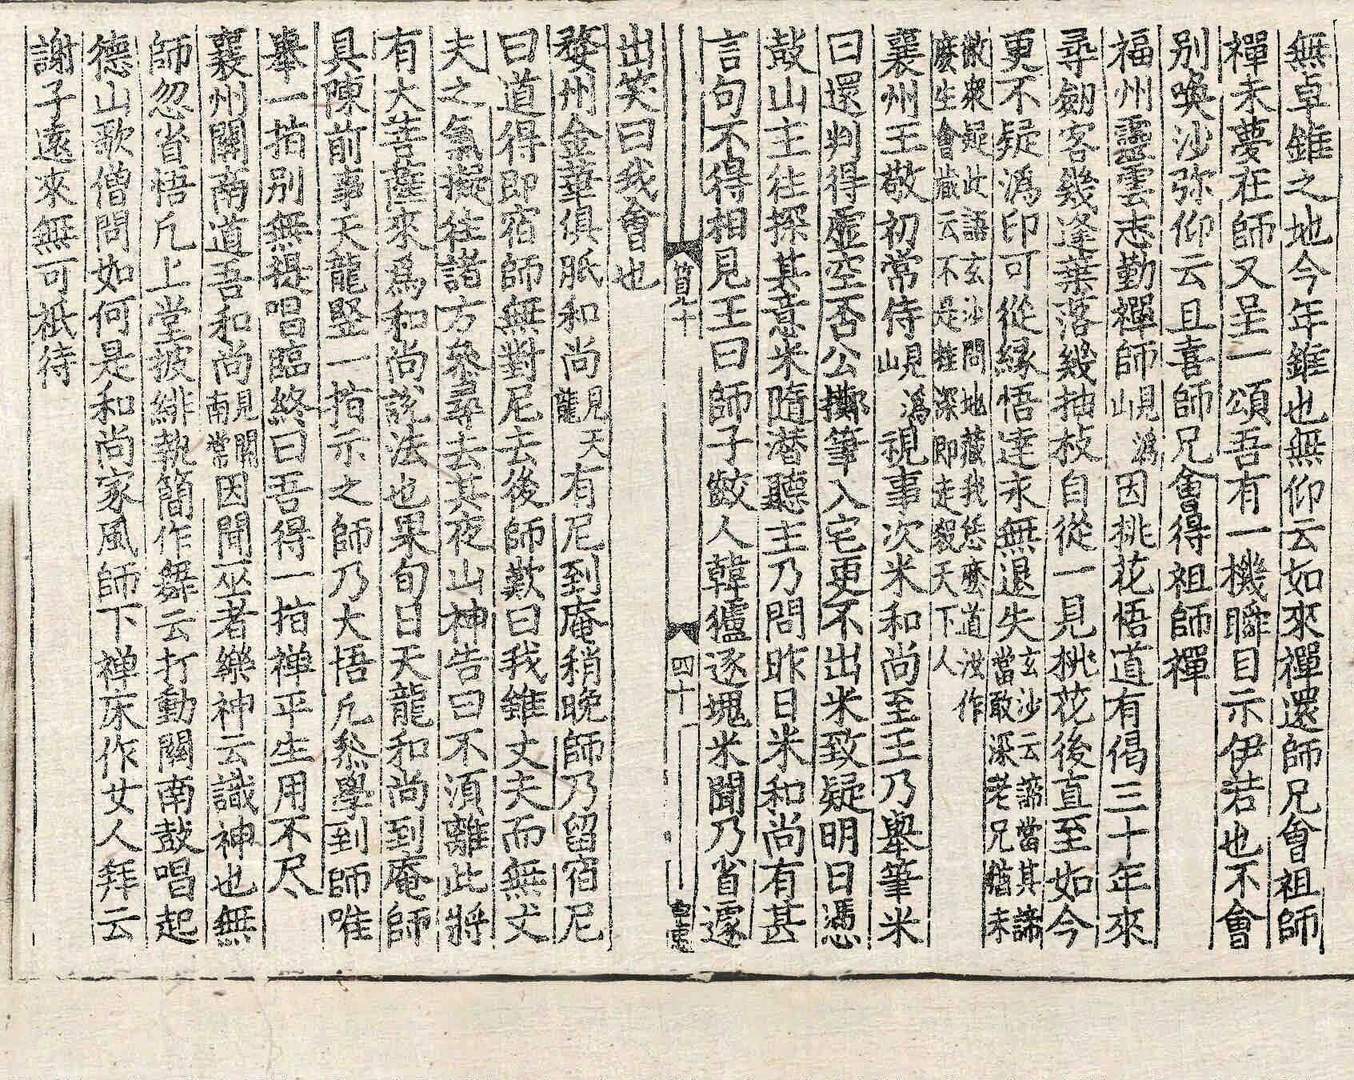 無卓錐之地今年錐也無仰云如來禪還師兄會祖師
禪未夢在師又呈一頌吾有一機瞬目示伊若也不會
別喚沙弥仰云且喜師兄會得祖師禪
福州靈雲志勤禪師見潙山因桃花悟道有偈三十年來
尋劒客幾逢葉落幾抽枝自從一見桃花後直至如今
更不疑潙印可從緣悟達永無退失玄沙云諦當甚諦當敢深老兄猶未
徹衆疑此語玄沙問地藏我恁麽道汝作麽生會藏云不是桂深即走殺天下人
襄州王敬初常侍見潙山視事次米和尚至王乃擧筆米
曰還判得虛空否公擲筆入宅更不出米致疑明日憑
鼓山主往探其意米隨潛聽主乃問昨日米和尚有甚
言句不得相見王曰師子齩人韓獹逐塊米聞乃省遽
出笑曰我會也
婺州金華俱胝和尚見天龍有尼到庵稍晚師乃留宿尼
曰道得即宿師無對尼去後師歎曰我雖丈夫而無丈
夫之氣擬往諸方叅尋去其夜山神告曰不須離此將
有大菩薩來爲和尚說法也果旬日天龍和尚到庵師
具陳前事天龍竪一指示之師乃大悟凡叅學到師唯
擧一指別無提唱臨終曰吾得一指禅平生用不尽
襄州關南道吾和尚見關南常因聞巫者樂神云識神也無
師忽省悟凡上堂披緋執簡作舞云打動關南鼓唱起
德山歌僧問如何是和尚家風師下禅床作女人拜云
謝子遠來無可祇待